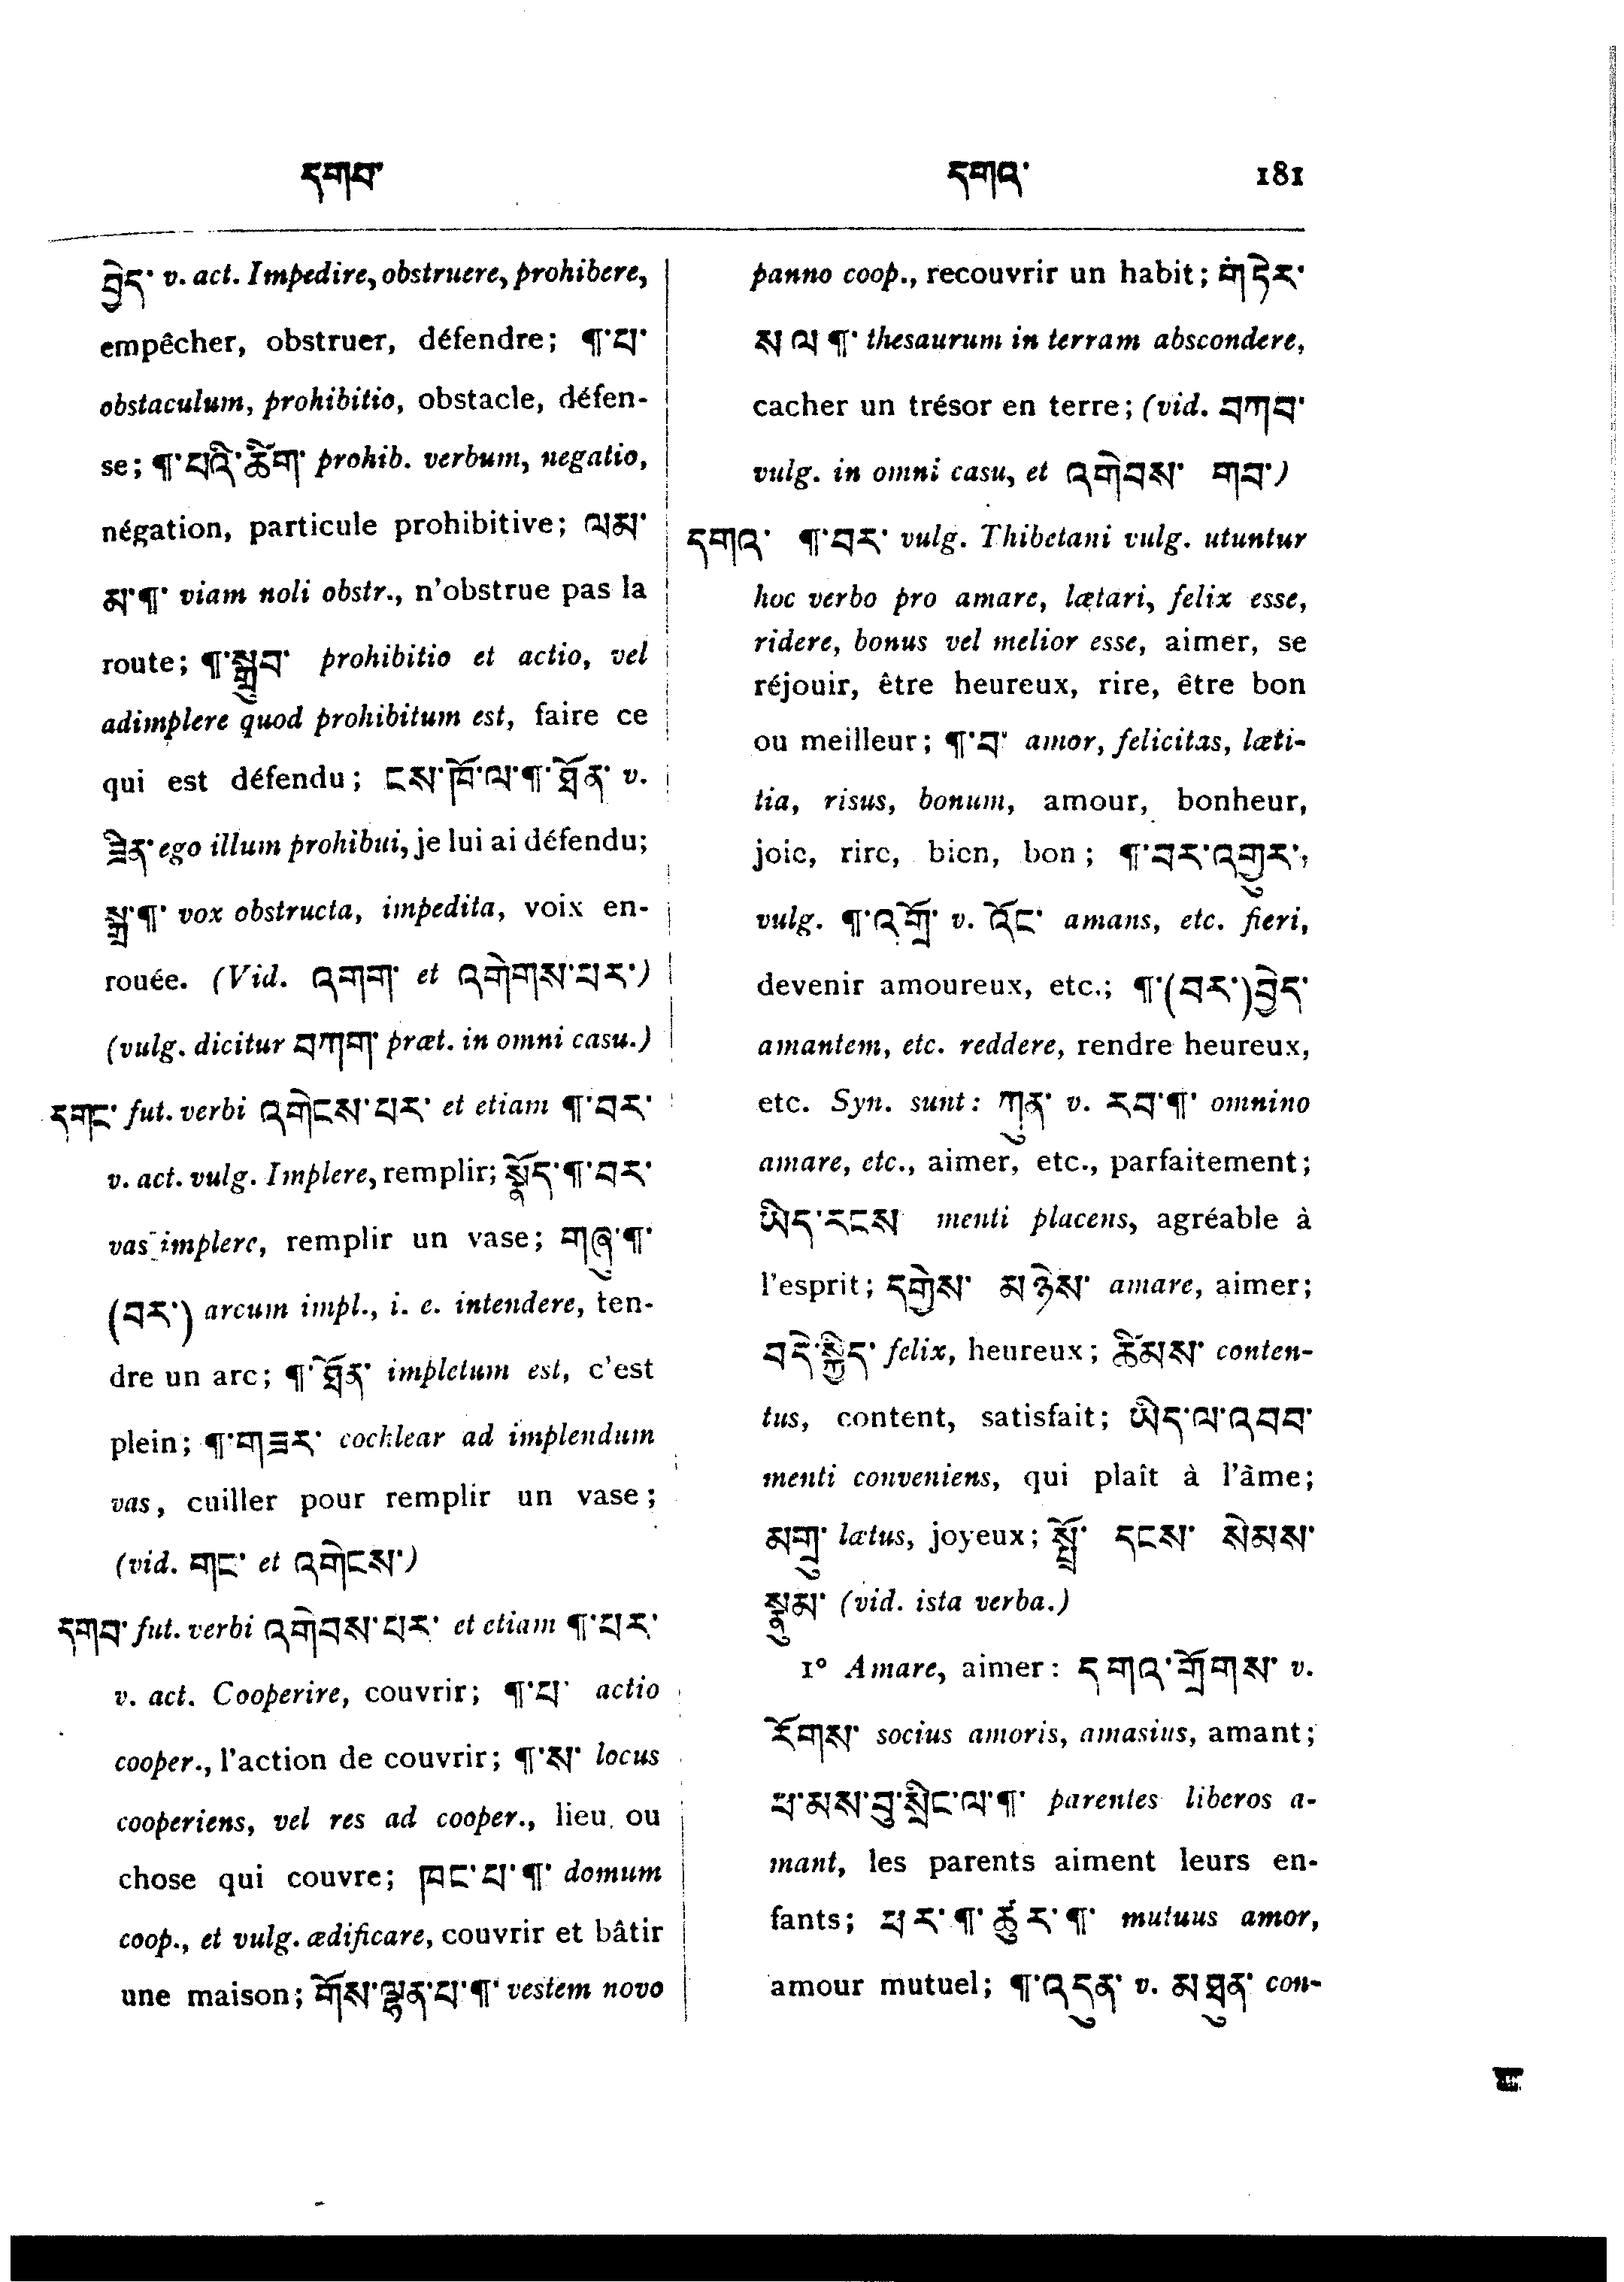 དགབ་ དགའ་ 181
བྱེད་ v. act. Impedire, obstruere, prohibere,
empêcher, obstruer, défendre; ¶་པ་
obstaculum, prohibitio, obstacle, défen-
se; ¶་པའི་ཚིག་ prohib. verbum, negatio,
négation, particule prohibitive; ལམ་
མ་¶་ viam noli obstr., n'obstrue pas la
route; ¶་སྒྲུབ་ prohibitio et actio, vel
adimplere quod prohibitum est, faire ce
qui est défendu; ངས་ཁོ་ལ་¶་ཐོན་ v.
ཟིན་ ego illum prohibui, je lui ai défendu;
སྒྲ་¶་ vox obstructa, impedita, voix en-
rouée. (Vid. འགག་ et འགེགས་པར་)
(vulg. dicitur བཀག་ præt. in omni casu.)
དགང་ fut. verbi འགེངས་པར་ et etiam ¶་བར་
v. act. vulg. Implere, remplir; སྣོད་¶་བར་
vas implere, remplir un vase; གཞུ་¶་
(བར་) arcum impl., i. e. intendere, ten-
dre un arc; ¶་ཐོན་ impletum est, c'est
plein; ¶་གཟར་ cochlear ad implendum
vas, cuiller pour remplir un vase;
(vid. གང་ et འགེངས་)
དགབ་ fut. verbi འགེབས་པར་ et etiam ¶་པར་
v. act. Cooperire, couvrir; ¶་པ་ actio
cooper., l'action de couvrir; ¶་ས་ locus
cooperiens, vel res ad cooper., lieu ou
chose qui couvre; ཁང་པ་¶་ domum
coop., et vulg. ædificare, couvrir et bâtir
une maison; གོས་ལྷན་པ་¶་ vestem novo
panno coop., recouvrir un habit; གཏེར་
ས ལ ¶་ thesaurum in terram abscondere,
cacher un trésor en terre; (vid. བཀབ་
vulg. in omni casu, et འགེབས་ གབ་)
དགའ་ ¶་བར་ vulg. Thibetani vulg. utuntur
hoc verbo pro amare, lætari, felix esse,
ridere, bonus vel melior esse, aimer, se
réjouir, être heureux, rire, être bon
ou meilleur; ¶་བ་ amor, felicitas, læti-
tia, risus, bonum, amour, bonheur,
joie, rire, bien, bon; ¶་བར་འགྱུར་,
vulg. ¶་འགྲོ་ v. འོང་ amans, etc. fieri,
devenir amoureux, etc.; ¶་(བར་)བྱེད་
amantem, etc. reddere, rendre heureux,
etc. Syn. sunt: ཀུན་ v. རབ་¶་ omnino
amare, etc., aimer, etc., parfaitement;
ཡིད་རངས menti placens, agréable à
l'esprit; དགྱེས་ མཉེས་ amare, aimer;
བདེ་སྐྱིད་ felix, heureux; ཚིམས་ conten-
tus, content, satisfait; ཡིད་ལ་འབབ་
menti conveniens, qui plaît à l'âme;
མགུ་ lætus, joyeux; སྤྲོ་ དངས་ སེམས་
སྣུམ་ (vid. ista verba.)
1° Amare, aimer: དགའ་གྲོགས་ v.
རོགས་ socius amoris, amasius, amant;
ཕ་མས་བུ་སྲིང་ལ་¶་ parentes liberos a-
mant, les parents aiment leurs en-
fants; ཕར་¶་ཚུར་¶་ mutuus amor,
amour mutuel; ¶་འདུན་ v. མཐུན་ con-